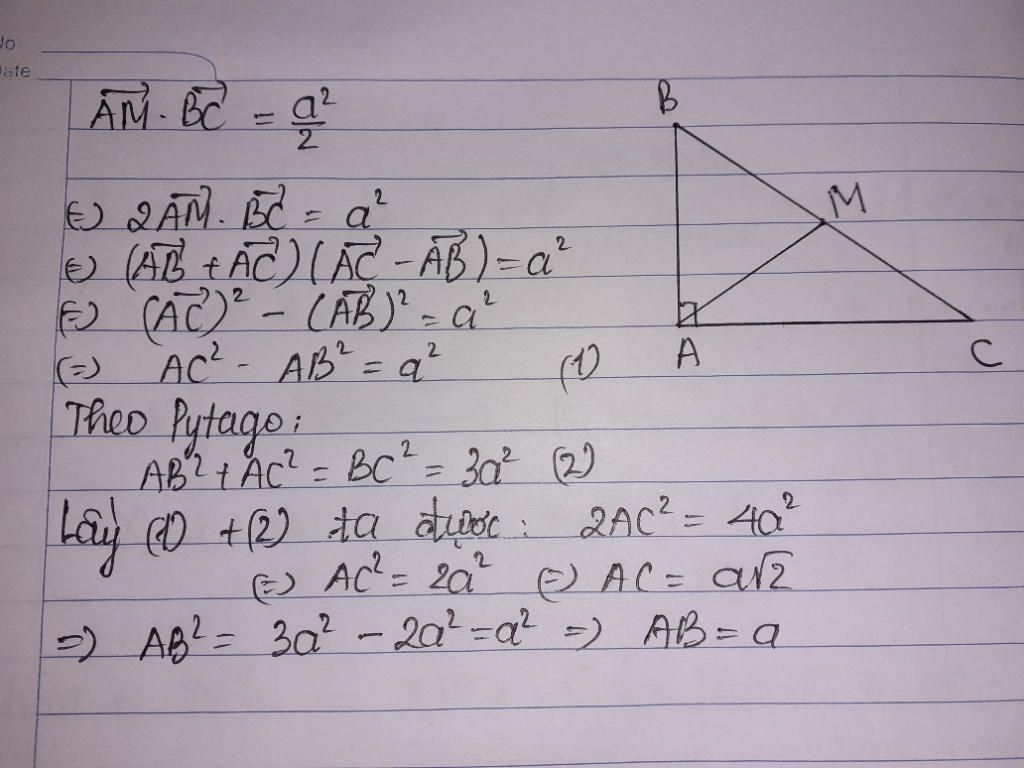 No
Date
$\overrightarrow{AM} \cdot \overrightarrow{BC} = \frac{a^2}{2}$
(=) $2\overrightarrow{AM} \cdot \overrightarrow{BC} = a^2$
(=) $(\overrightarrow{AB} + \overrightarrow{AC})(\overrightarrow{AC} - \overrightarrow{AB}) = a^2$
(=) $(\overrightarrow{AC})^2 - (\overrightarrow{AB})^2 = a^2$
(=) $AC^2 - AB^2 = a^2$ (1)
Theo Pytago:
$AB^2 + AC^2 = BC^2 = 3a^2$ (2)
Lấy (1) + (2) ta được: $2AC^2 = 4a^2$
(=) $AC^2 = 2a^2$ (=) $AC = a\sqrt{2}$
=) $AB^2 = 3a^2 - 2a^2 = a^2$ =) $AB = a$
B
M
A
C